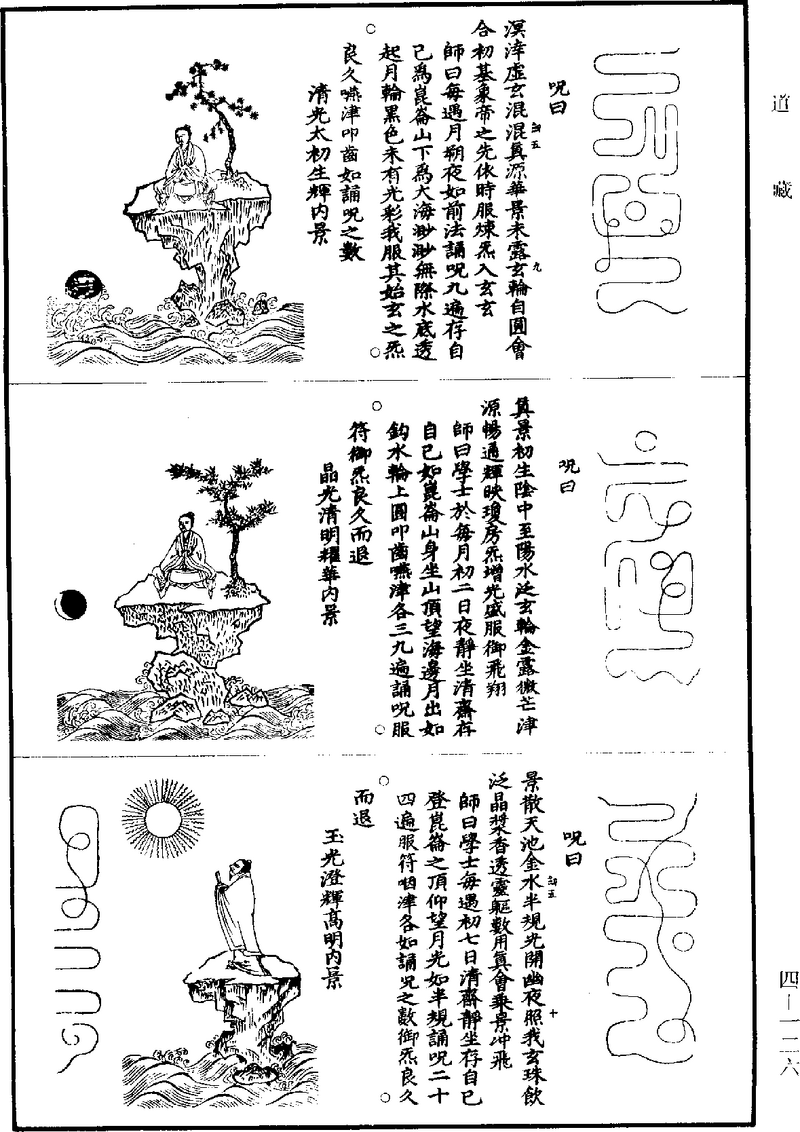 道藏
呪曰
溟涬虛玄混混真源華景未露玄輪自圓會
合初基象帝之先依時服煉炁入玄玄
師曰每遇月朔夜如前法誦呪九遍存自
己為崑崙山下為大海渺渺無際水底透
起月輪黑色未有光彩我服其始玄之炁
良久嚥津叩齒如誦呪之數
清光太初生輝內景
呪曰
真景初生陰中至陽水泛玄輪金露微芒津
源暢通輝映瓊房炁增光盛服御飛翔
師曰學士於每月初二日夜靜坐清齋存
自己如崑崙山身坐山頂望海邊月出如
鈎水輪上圓叩齒嚥津各三九遍誦呪服
符御炁良久而退
晶光清明耀華內景
呪曰
景散天池金水半規光開幽夜照我玄珠飲
泛晶漿香透靈軀數用真會乘景冲飛
師曰學士每遇初七日清齋靜坐存自己
登崑崙之頂仰望月光如半規誦呪二十
四遍服符咽津各如誦呪之數御炁良久
而退
玉光澄輝高明內景
五
九
五
十
四—一二六